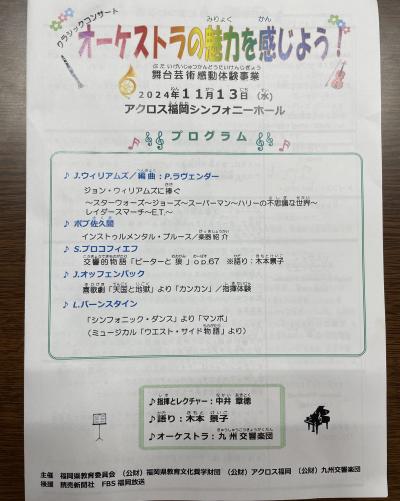 クラシックコンサート
オーケストラの魅力を感じよう!
舞台芸術感動体験事業
2024年11月13日(水)
アクロス福岡シンフォニーホール
プログラム
♪ J.ウィリアムズ/編曲:P.ラヴェンダー
ジョン・ウィリアムズに捧ぐ
~スターウォーズ~ジョーズ~スーパーマン~ハリーの不思議な世界~
レイダースマーチ~E.T.~
♪ ボブ佐久間
インストゥルメンタル・ブルース/楽器紹介
♪ S.プロコフィエフ
交響的物語「ピーターと狼」op.67 ※語り:木本景子
♪ J.オッフェンバック
喜歌劇「天国と地獄」より「カンカン」/指揮体験
♪ L.バーンスタイン
「シンフォニック・ダンス」より「マンボ」
(ミュージカル「ウエスト・サイド物語」より)
♪指揮とレクチャー:中井 章徳
♪語り:木本 景子
♪オーケストラ:九州交響楽団
主催 福岡県教育委員会 (公財)福岡県教育文化奨学財団 (公財)アクロス福岡 (公財)九州交響楽団
後援 読売新聞社 FBS福岡放送